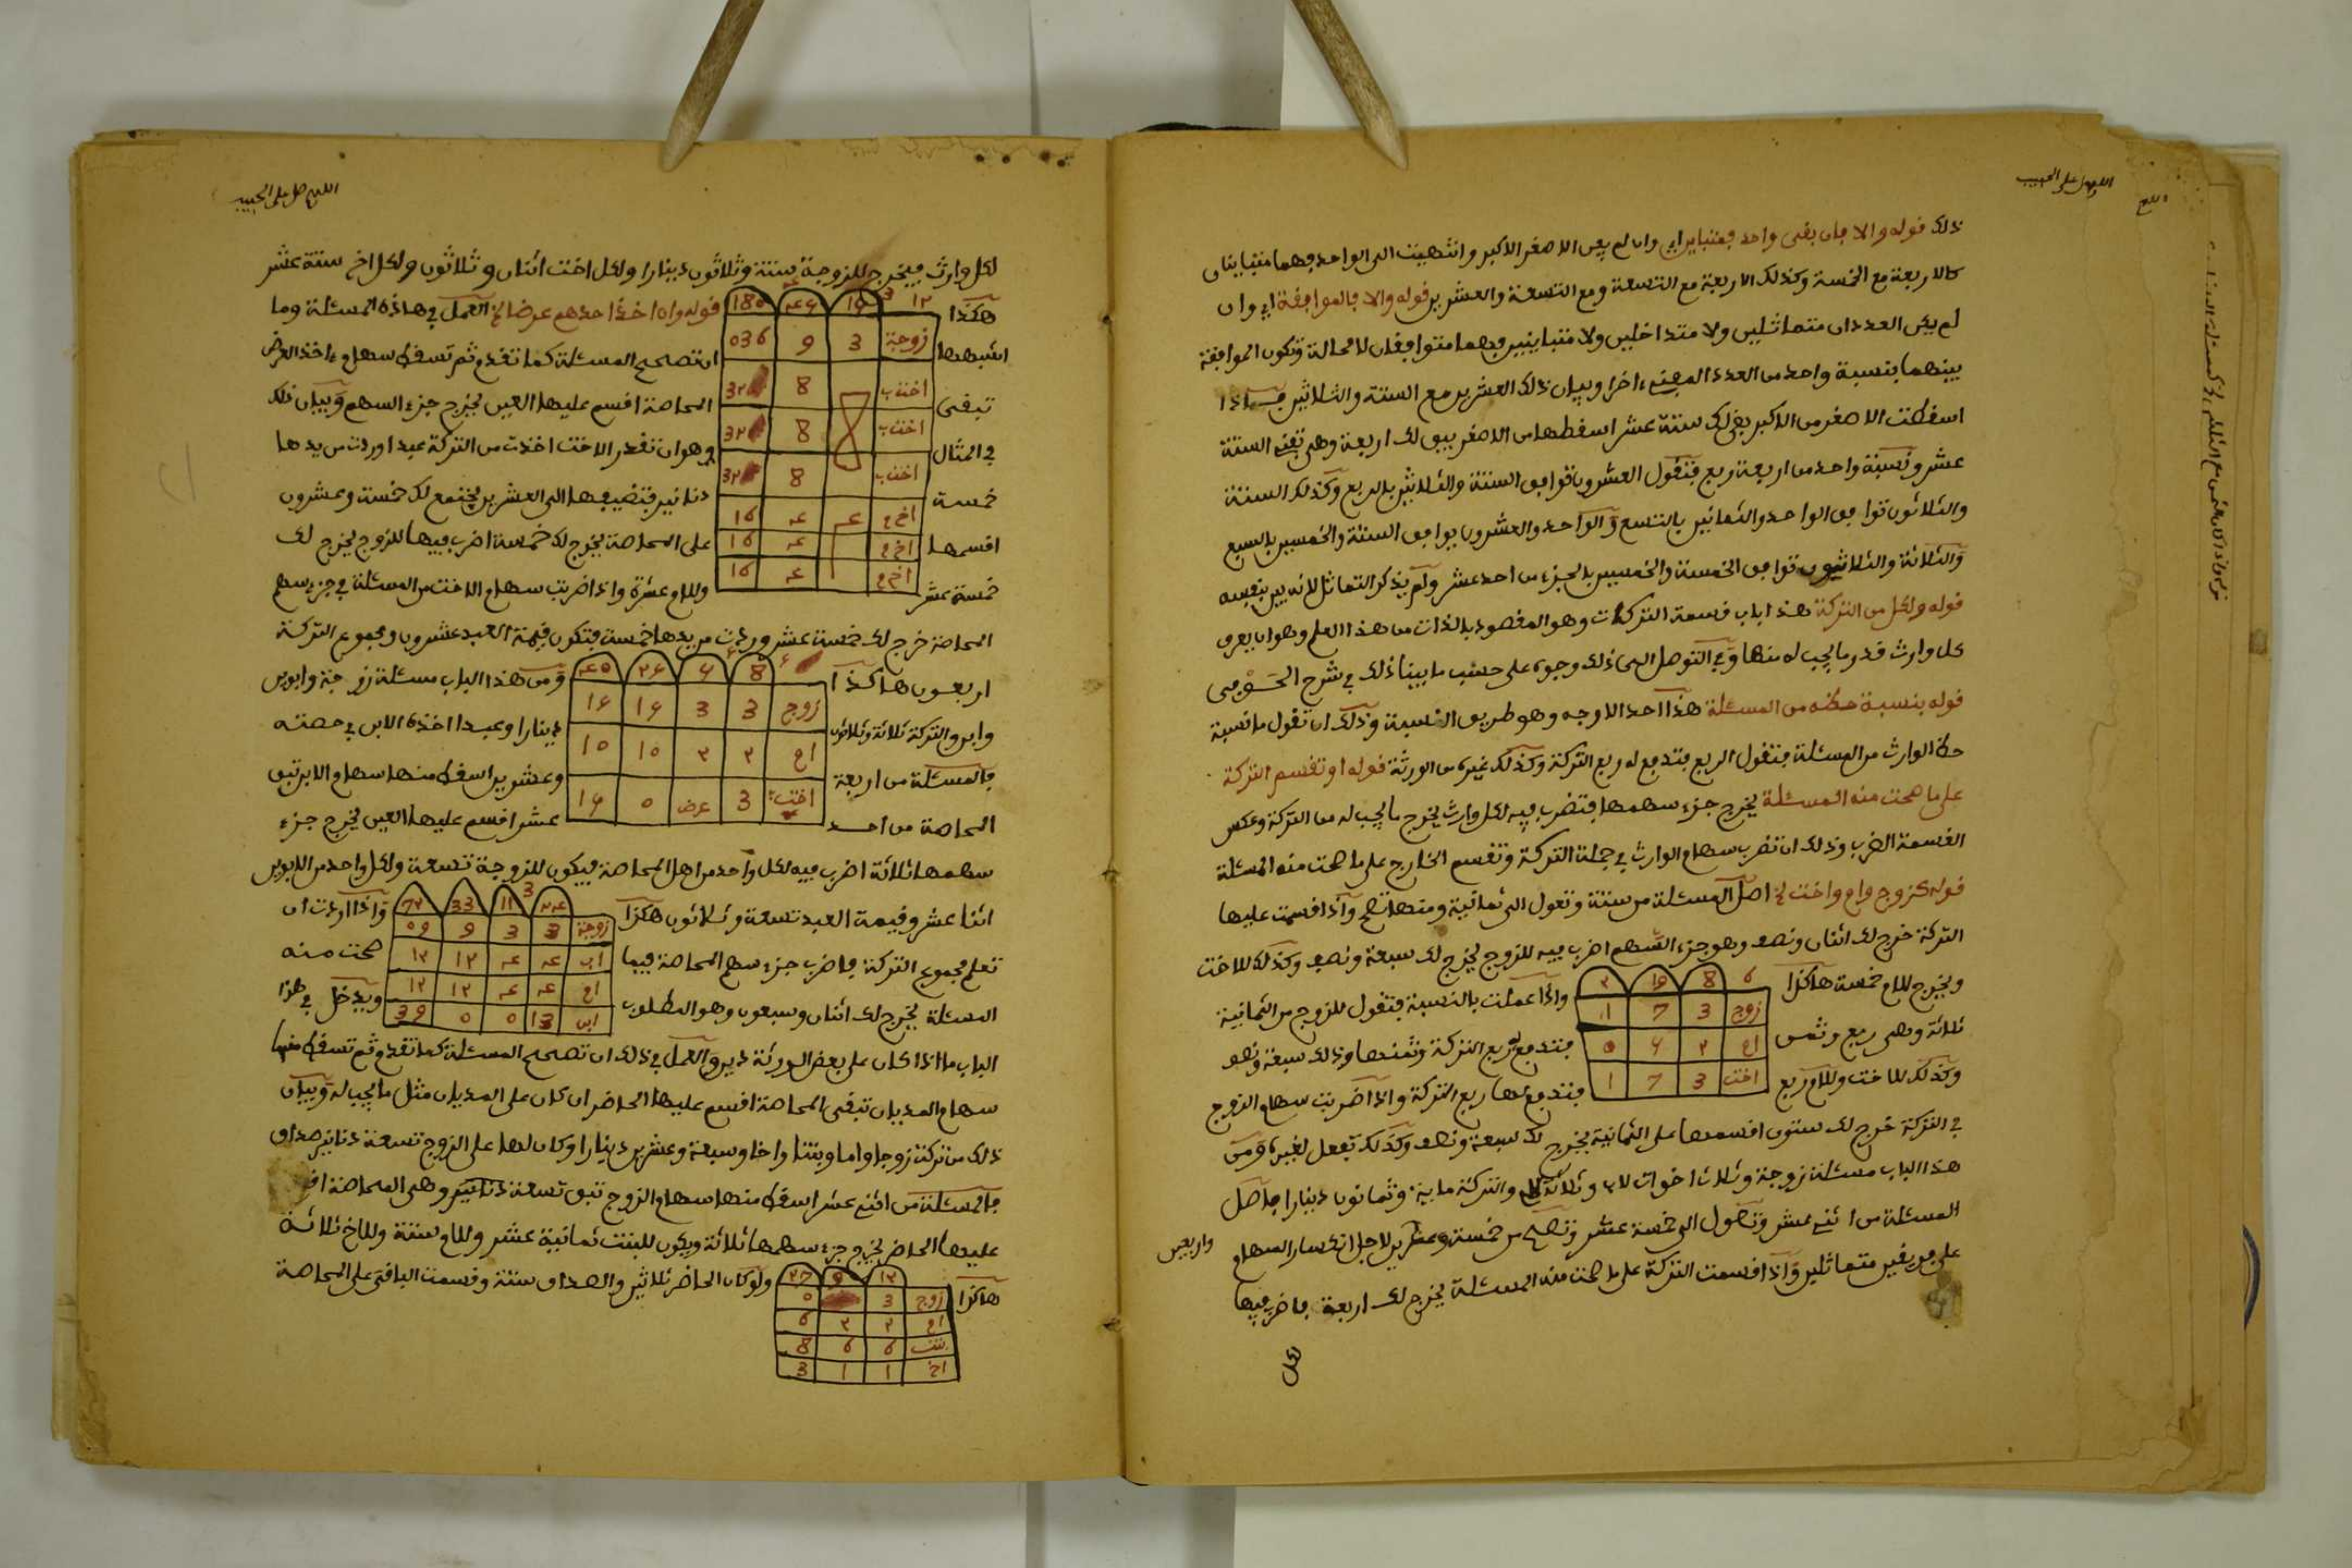 اللهم صل على الحبيب
ذلك قوله والا فان بقى واحد فمتباين اي وان لم يفن الاصغر الاكبر وانتهيت الى الواحد فهما متباينان
كالاربعة مع الخمسة وكذلك الاربعة مع التسعة ومع التسعة والعشرين قوله والا فالموافقة اي وان
لم يكن العددان متماثلين ولا متداخلين ولا متباينين فهما متوافقان لا محالة وتكون الموافقة
بينهما بنسبة واحد من العدد المفنى اخرا وبيان ذلك العشرين مع الستة والثلاثين فاذا
اسقطت الاصغر من الاكبر بقى لك ستة عشر اسقطها من الاصغر يبق لك اربعة وهي تفنى الستة
عشر ونسبة واحد من اربعة ربع فتقول العشرون توافق الستة والثلاثين بالربع وكذلك الستة
والثلاثون توافق الواحد والثمانين بالتسع والواحد والعشرون يوافق الستة والخمسين بالسبع
والثلاثة والثلاثون توافق الخمسة والخمسين بالجزء من احد عشر ولم يذكر التماثل لانه بين بنفسه
قوله ولكل من التركة هذا باب قسمة التركات وهو المقصود بالذات من هذا العلم وهو ان يعرف
كل وارث قدر ما يجب له منها وفي التوصل الى ذلك وجوه على حسب ما بيناه ذلك في شرح الحوفي
قوله بنسبة حظه من المسئلة هذا احد الاوجه وهو طريق النسبة وذلك ان تقول ما نسبة
حظ الوارث من المسئلة فتقول الربع فتدفع له ربع التركة وكذلك غيره من الورثة قوله او تقسم التركة
على ما صحت منه المسئلة يخرج جزء سهمها فتضرب فيه لكل وارث يخرج ما يجب له من التركة وعكس
القسمة الضرب وذلك ان تضرب سهام الوارث في جملة التركة وتقسم الخارج على ما صحت منه المسئلة
قوله كزوج وام واخت الخ اصل المسئلة من ستة وتعول الى ثمانية ومنها تصح واذا قسمت عليها
التركة خرج لك اثنان ونصف وهو جزء السهم اضرب فيه للزوج يخرج لك سبعة ونصف وكذلك للاخت
ويخرج للام خمسة هاكذا
واذا عملت بالنسبة فتقول للزوج من الثمانية
ثلاثة وهي ربع وثمن
فتدفع له ربع التركة وثمنها وذلك سبعة ونصف
وكذلك للاخت وللام ربع
فتدفع لها ربع التركة واذا ضربت سهام الزوج
زوج 3 7 1
ام ٢ 5 0
اخت 3 7 1
في التركة خرج لك ستون اقسمها على الثمانية يخرج لك سبعة ونصف وكذلك تفعل لغيره ومن
هذا الباب مسئلة زوجة وثلاث اخوات لام وثلاثة والتركة ماية وثمانون دينارا فاصل
المسئلة من اثني عشر وتعول الى خمسة عشر وتصح من خمسة واربعين لاجل انكسار السهام
على فريقين متماثلين واذا قسمت التركة على ما صحت منه المسئلة يخرج لك اربعة فاضرب فيها
لكل
اللهم صل على الحبيب
لكل وارث فيخرج للزوجة ستة وثلاثون دينارا ولكل اخت اثنان وثلاثون ولكل اخ ستة عشر
هكذا
قوله وان اخذ احدهم عرضا الخ العمل في هاذه المسئلة وما
اشبهها
ان تصحح المسئلة كما تقدم ثم تسقط سهام ءاخذ العرض
تبقى
المحاصة اقسم عليها العين يخرج جزء السهم وبيان ذلك
في المثال
وهو ان تقدر الاخت اخذت من التركة عبدا وردت من يدها
خمسة
دنانير فتضيفها الى العشرين يجتمع لك خمسة وعشرون
اقسمها
على المحاصة يخرج لك خمسة اضرب فيها للزوج يخرج لك
خمسة عشر
وللام عشرة واذا ضربت سهام الاخت من المسئلة في جزء سهم
زوجة 3 9 036
اخت 8 32
اخت 8 32
اخت 8 32
المحاصة خرج لك خمسة عشر وردت من يدها خمسة فتكون قيمة العبد عشرون ومجموع التركة
اربعون هاكذا
ومن هذا الباب مسئلة زوجة وابوين
وابن والتركة ثلاثة وثلاثون
دينارا وعبدا اخذه الابن في حصته
فالمسئلة من اربعة
وعشرين اسقط منها سهام الابن تبق
المحاصة من احد
عشر اقسم عليها العين يخرج جزء
سهمها ثلاثة اضرب فيه لكل واحد من اهل المحاصة فيكون للزوجة تسعة ولكل واحد من الابوين
اثنا عشر وقيمة العبد تسعة وثلاثون هكذا
واذا اردت ان
تعلم مجموع التركة فاضرب جزء سهم المحاصة فيما
صحت منه
المسئلة يخرج لك اثنان وسبعون وهو المطلوب
ويدخل في هذا
زوجة 3 3 9 09
اب ٤ ٤ ١٢ ١٢
ام ٤ ٤ ١٢ ١٢
ابن 13 0 0 39
الباب ما اذا كان على بعض الورثة دين والعمل في ذلك ان تصحح المسئلة كما تقدم ثم تسقط منها
سهام المديان تبقى المحاصة اقسم عليها الحاضر ان كان على المديان مثل ما يجب له وبيان
ذلك من تركت زوجا واما وبنتا واخا وسبعة وعشرين دينارا وكان لها على الزوج تسعة دنانير صداق
فالمسئلة من اثني عشر اسقط منها سهام الزوج تبق تسعة وهي المحاصة
عليها الحاضر يخرج جزء سهمها ثلاثة ويكون للبنت ثمانية عشر وللام ستة وللاخ ثلاثة
هاكذا
ولو كان الحاضر ثلاثين والصداق ستة وقسمت الباقي على المحاصة